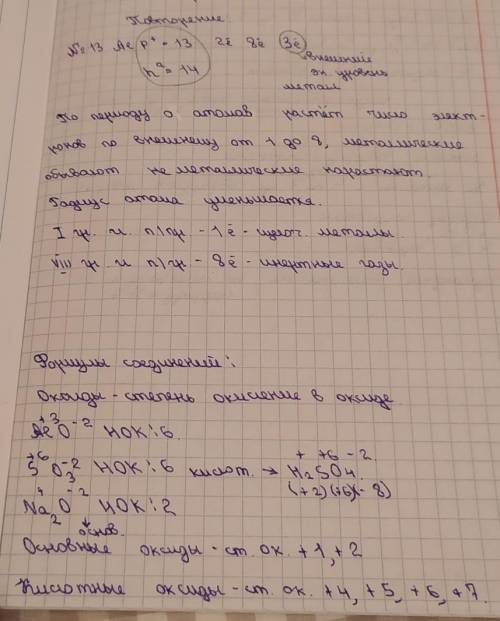 Повторение
№ 13 Al p⁺ = 13 2ē 8ē 3ē
n⁰ = 14 внешний
эн. уровень
метал
По периоду о атомов растёт число элект-
ронов по внешнему от 1 до 8, металлические
обывают не металлические нарастают
Радиус атома уменьшается.
I гр. и. п/гр - 1ē - щелоч. металлы.
VIII гр. и п/гр - 8ē - инертные газы.
Формулы соединений:
Оксиды - степень окисление в оксиде
Al⁺³O⁻² НОК: 6.
S⁺⁶O₃⁻² НОК: 6 кислот. → H₂⁺S⁺⁶O₄⁻²
(+2)(+6)(-8)
Na₂⁺O⁻² НОК: 2
основ.
Основные оксиды - ст. ок. +1, +2
Кислотные оксиды - ст. ок. +4, +5, +6, +7.